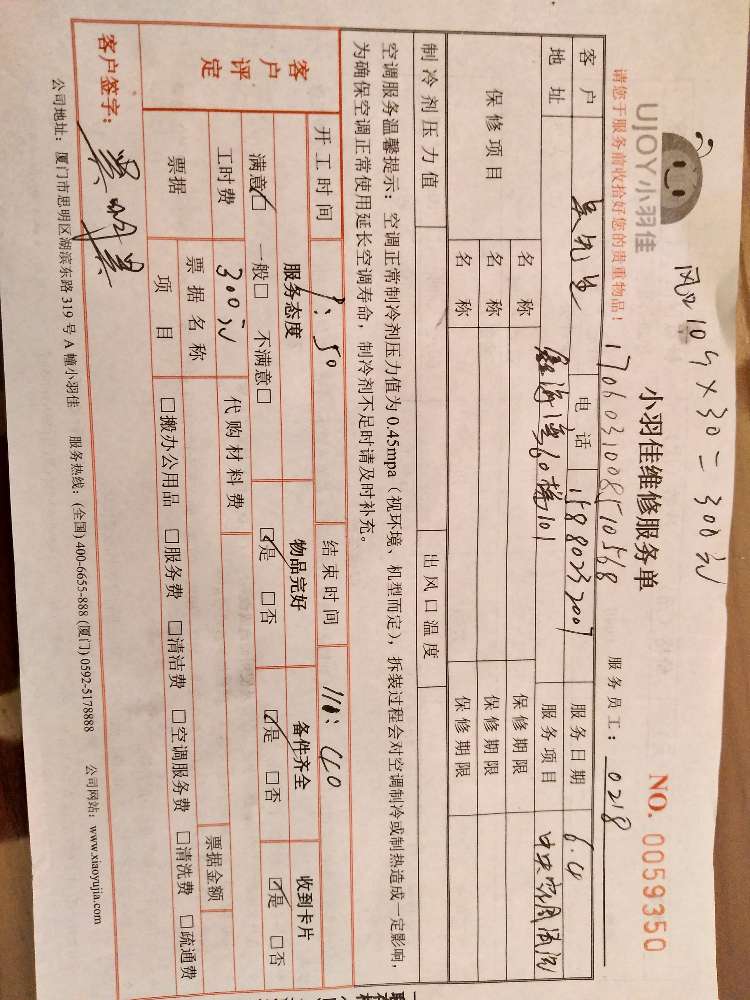 风口10个×30=300元
UJOY小羽佳
请您于服务前收拾好您的贵重物品！
小羽佳维修服务单
NO. 0059350
17060310085110568
服务员工：0218
客户 吴先生 电话 15880232007 服务日期 6.4
地址 鑫海湾60栋101 服务项目 中央空调清洗
保修项目 名称 保修期限
名称 保修期限
名称 保修期限
制冷剂压力值 出风口温度
空调服务温馨提示：空调正常制冷剂压力值为 0.45mpa（视环境、机型而定），拆装过程会对空调制冷或制热造成一定影响，
为确保空调正常使用延长空调寿命，制冷剂不足时请及时补充。
开工时间 9：50 结束时间
客户评定 服务态度 物品完好 备件齐全 收到卡片
满意☑ 一般□ 不满意□ ☑是 □否 ☑是 □否 ☑是 □否
工时费 300元 代购材料费
票据 票据名称 票据金额
项目 □搬办公用品 □服务费 □清洁费 □空调服务费 □清洗费 □疏通费
客户签字：
公司地址：厦门市思明区湖滨东路 319 号 A 幢小羽佳 服务热线：(全国) 400-6655-888 (厦门) 0592-5178888 公司网站：www.xiaoyujia.com